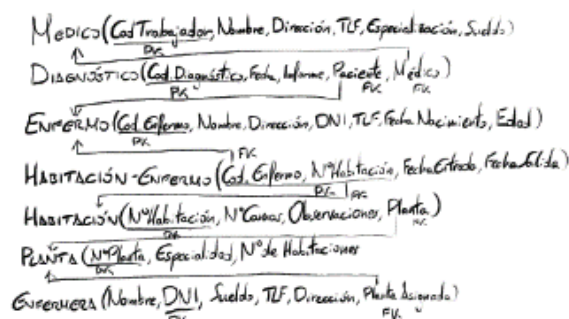 MEDICO (Cod Trabajador, Nombre, Dirección, TLF, Especialización, Sueldo)
PK
DIAGNÓSTICO (Cod. Diagnóstico, Fecha, Informe, Paciente, Médico)
PK FK FK
ENFERMO (Cod. Enfermo, Nombre, Dirección, DNI, TLF, Fecha Nacimiento, Edad)
PK
FK
HABITACIÓN-ENFERMO (Cod. Enfermo, NºHabitación, Fecha Entrada, Fecha Salida)
PK FK
HABITACIÓN (NºHabitación, NºCamas, Observaciones, Planta)
PK FK
PLANTA (NºPlanta, Especialidad, Nº de Habitaciones
PK
ENFERMERA (Nombre, DNI, Sueldo, TLF, Dirección, Planta Asignada)
PK FK